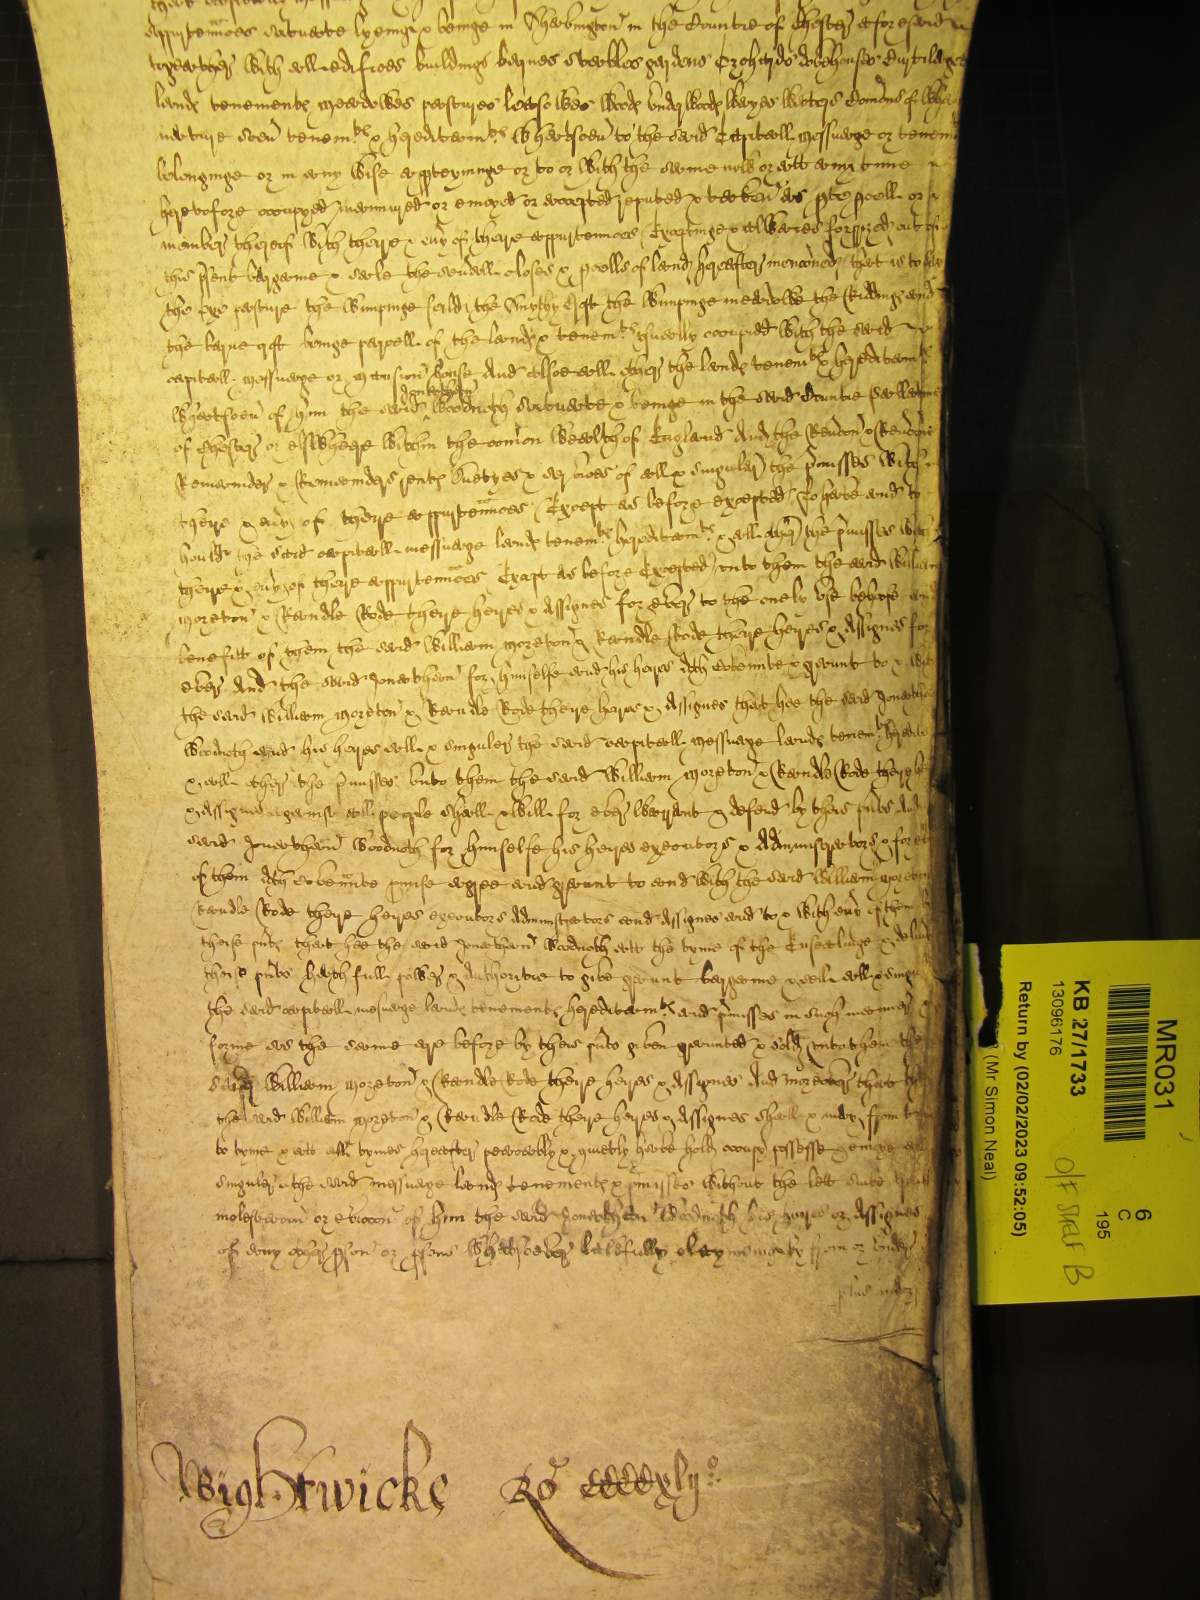 appurtenñces scituate lyeinge & beinge in Shavington in the Countie of Chester aforesaid
togeather with all edifices buildings barnes stables gardens Orchards dovehouses Curtilages
lands tenements meadowes pastures leasowes woods underwoods wayes waters Comons of what
nature soeu tenemts & hereditamts whatsoeu to the said Capitall messuage or tenemt
belonginge or in any wise apperteyninge or to or with the same now or att any time
heretofore occupyed manured or enioyed or accepted reputed & taken as pte pcell or
member thereof with there & euy of there appurtenñces Exceptinge & allwaies forprized out of
this psent bargaine & sale the seuall closes & pcells of land hereafter menconed that is to say
the oxe pasture the Wimpinge feild the Smythy Croft the Wimpinge meadowe the Ridding and
the barne croft beinge parcell of the lands & tenemts usually occupied with the said
capitall messuage or mansion house And alsoe all other the lands tenemts & hereditamts
whatsoeu of him the said Jonathan Woodnoth scituate & beinge in the said Countie Pallatyne
of Chester or elswhere within the comon wealth of England And the Reucon & Reucons
Remainder & Remainders rents duetyes & services of all & singuler the pmisses with
there & euy of there appurtenñces Except as before excepted To have and to
hould the said capitall messuage lands tenemts hereditamts & all other the pmisses with
there & euy of there appurtenñces Except as before Excepted unto them the said William
moreton & Randle Rode there heires & Assignes for ever to the onely use behoofe and
benefitt of them the said William moreton & Randle Rode there heires & Assignes for
ever And the said Jonathan for himselfe and his heires doth covennte & graunt to & with
the said William moreton & Randle Rode there heires & Assignes that hee the said Jonathan
Woodnoth and his heires all & singuler the said capitall messuage lands tenemts heredita
& all other the pmisses unto them the said William moreton & Randle Rode there
& Assignes against all people shall & will for ever warrant & defend by theis pnts And
said Jonathan Woodnoth for himselfe his heires executors & Administrators & for
of them doth covennte pmise agree and graunt to and with the said William moreton
Randle Rode there heires executors Administrators and Assignes and to & with euy of them
theise pnts that hee the said Jonathan Woodnoth att the tyme of the Ensealinge &
theise pnts hath full power & Authoritie to give graunt bargaine & sell all & singu
the said capitall messuage lands tenements hereditamts and pmisses in such manner
forme as the same are before by theis pnts given graunted & sold unto them the
said William moreton & Randle Rode there heires & Assignes And moreover that
the said William moreton & Randle Rode there heires & Assignes shall & may from time
to tyme & att all tymes hereafter peaceably & quietly have hold occupy possesse & enioye
singuler the said messuage lands tenements & pmisses without the lett suite
molestacon or eviccon of him the said Jonathan Woodnoth his heires or Assignes
of any other pson or psons whatsoever lawfully clayminge by from or under
Wightwicke Ro CCCCxlijo
MR031
6
C
195
KB 27/1733
13096176
Return by (02/02/2023 09:52:05)
(Mr Simon Neal)